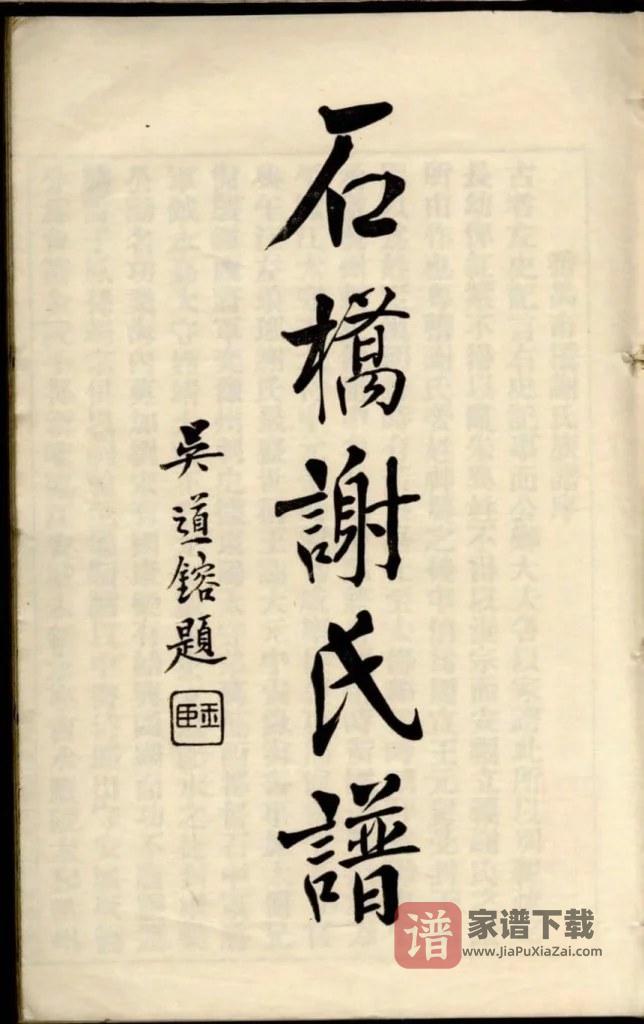 石橋謝氏譜
吳道鎔題
玉臣
谱
家谱下载
www.JiaPuXiaZai.com